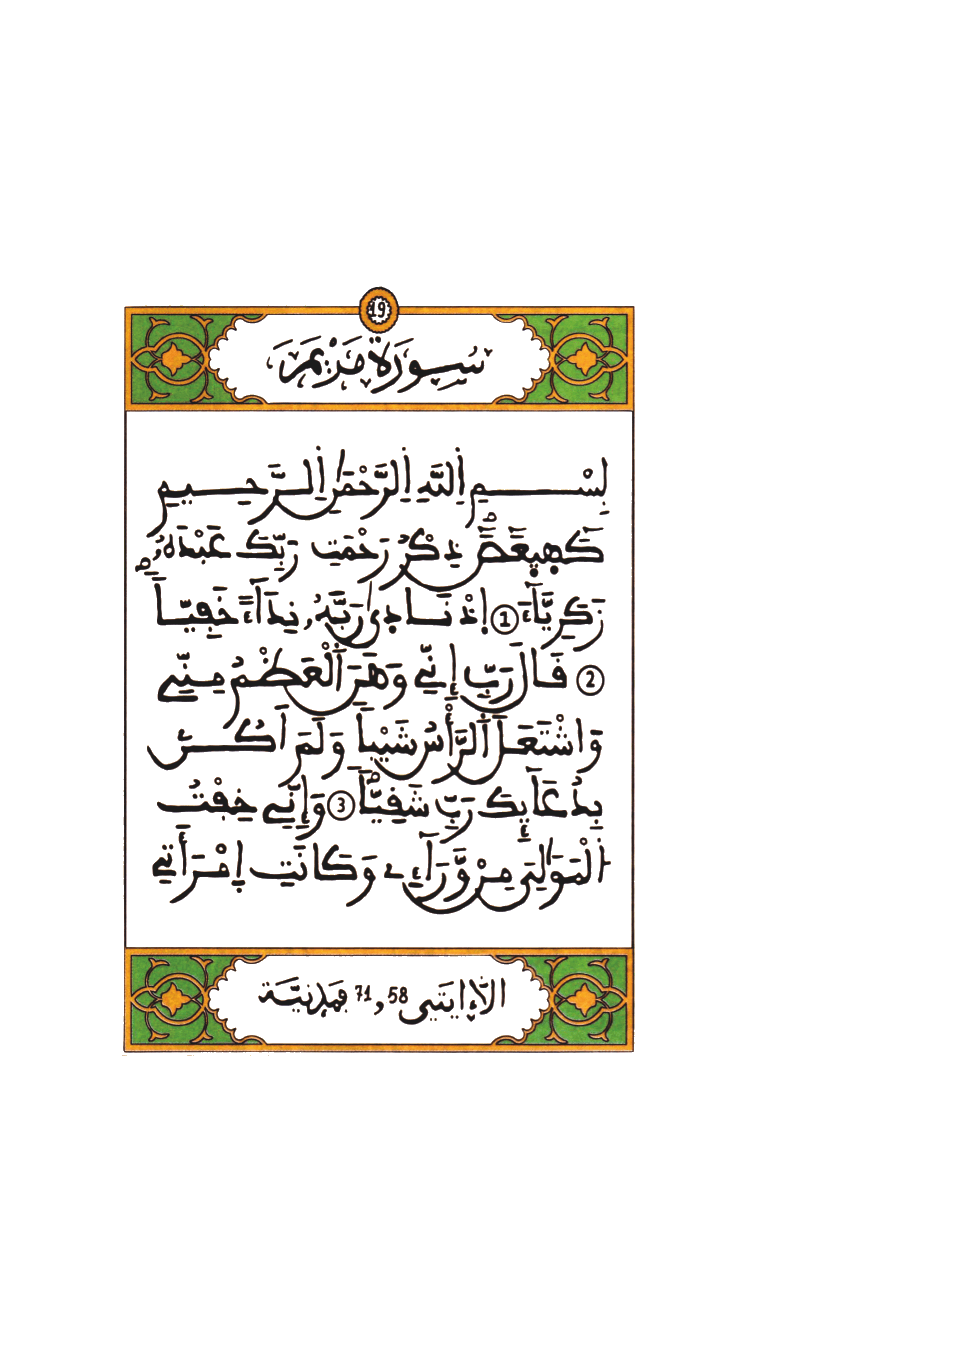 19
سُورَةُ مَرْيَمَ
بِسْمِ اِللَّهِ اِلرَّحْمَٰنِ اِلرَّحِيمِ
كَهيعَصَ ذِكْرُ رَحْمَتِ رَبِّكَ عَبْدَهُۥ
زَكَرِيَّآءَ 1 اِذْ نَادَىٰ رَبَّهُۥ نِدَآءً خَفِيّاٗ
2 قَالَ رَبِّ إِنِّے وَهَنَ اَلْعَظْمُ مِنِّے
وَاشْتَعَلَ اَلرَّأْسُ شَيْباٗ وَلَمَ اَكُنۢ
بِدُعَآئِكَ رَبِّ شَقِيّاٗ 3 وَإِنِّے خِفْتُ
اُلْمَوَٰلِىَ مِنْ وَّرَآءِے وَكَانَتِ اِمْرَأَتِے
الآ ايتي 58 و 71 فمدنيّة